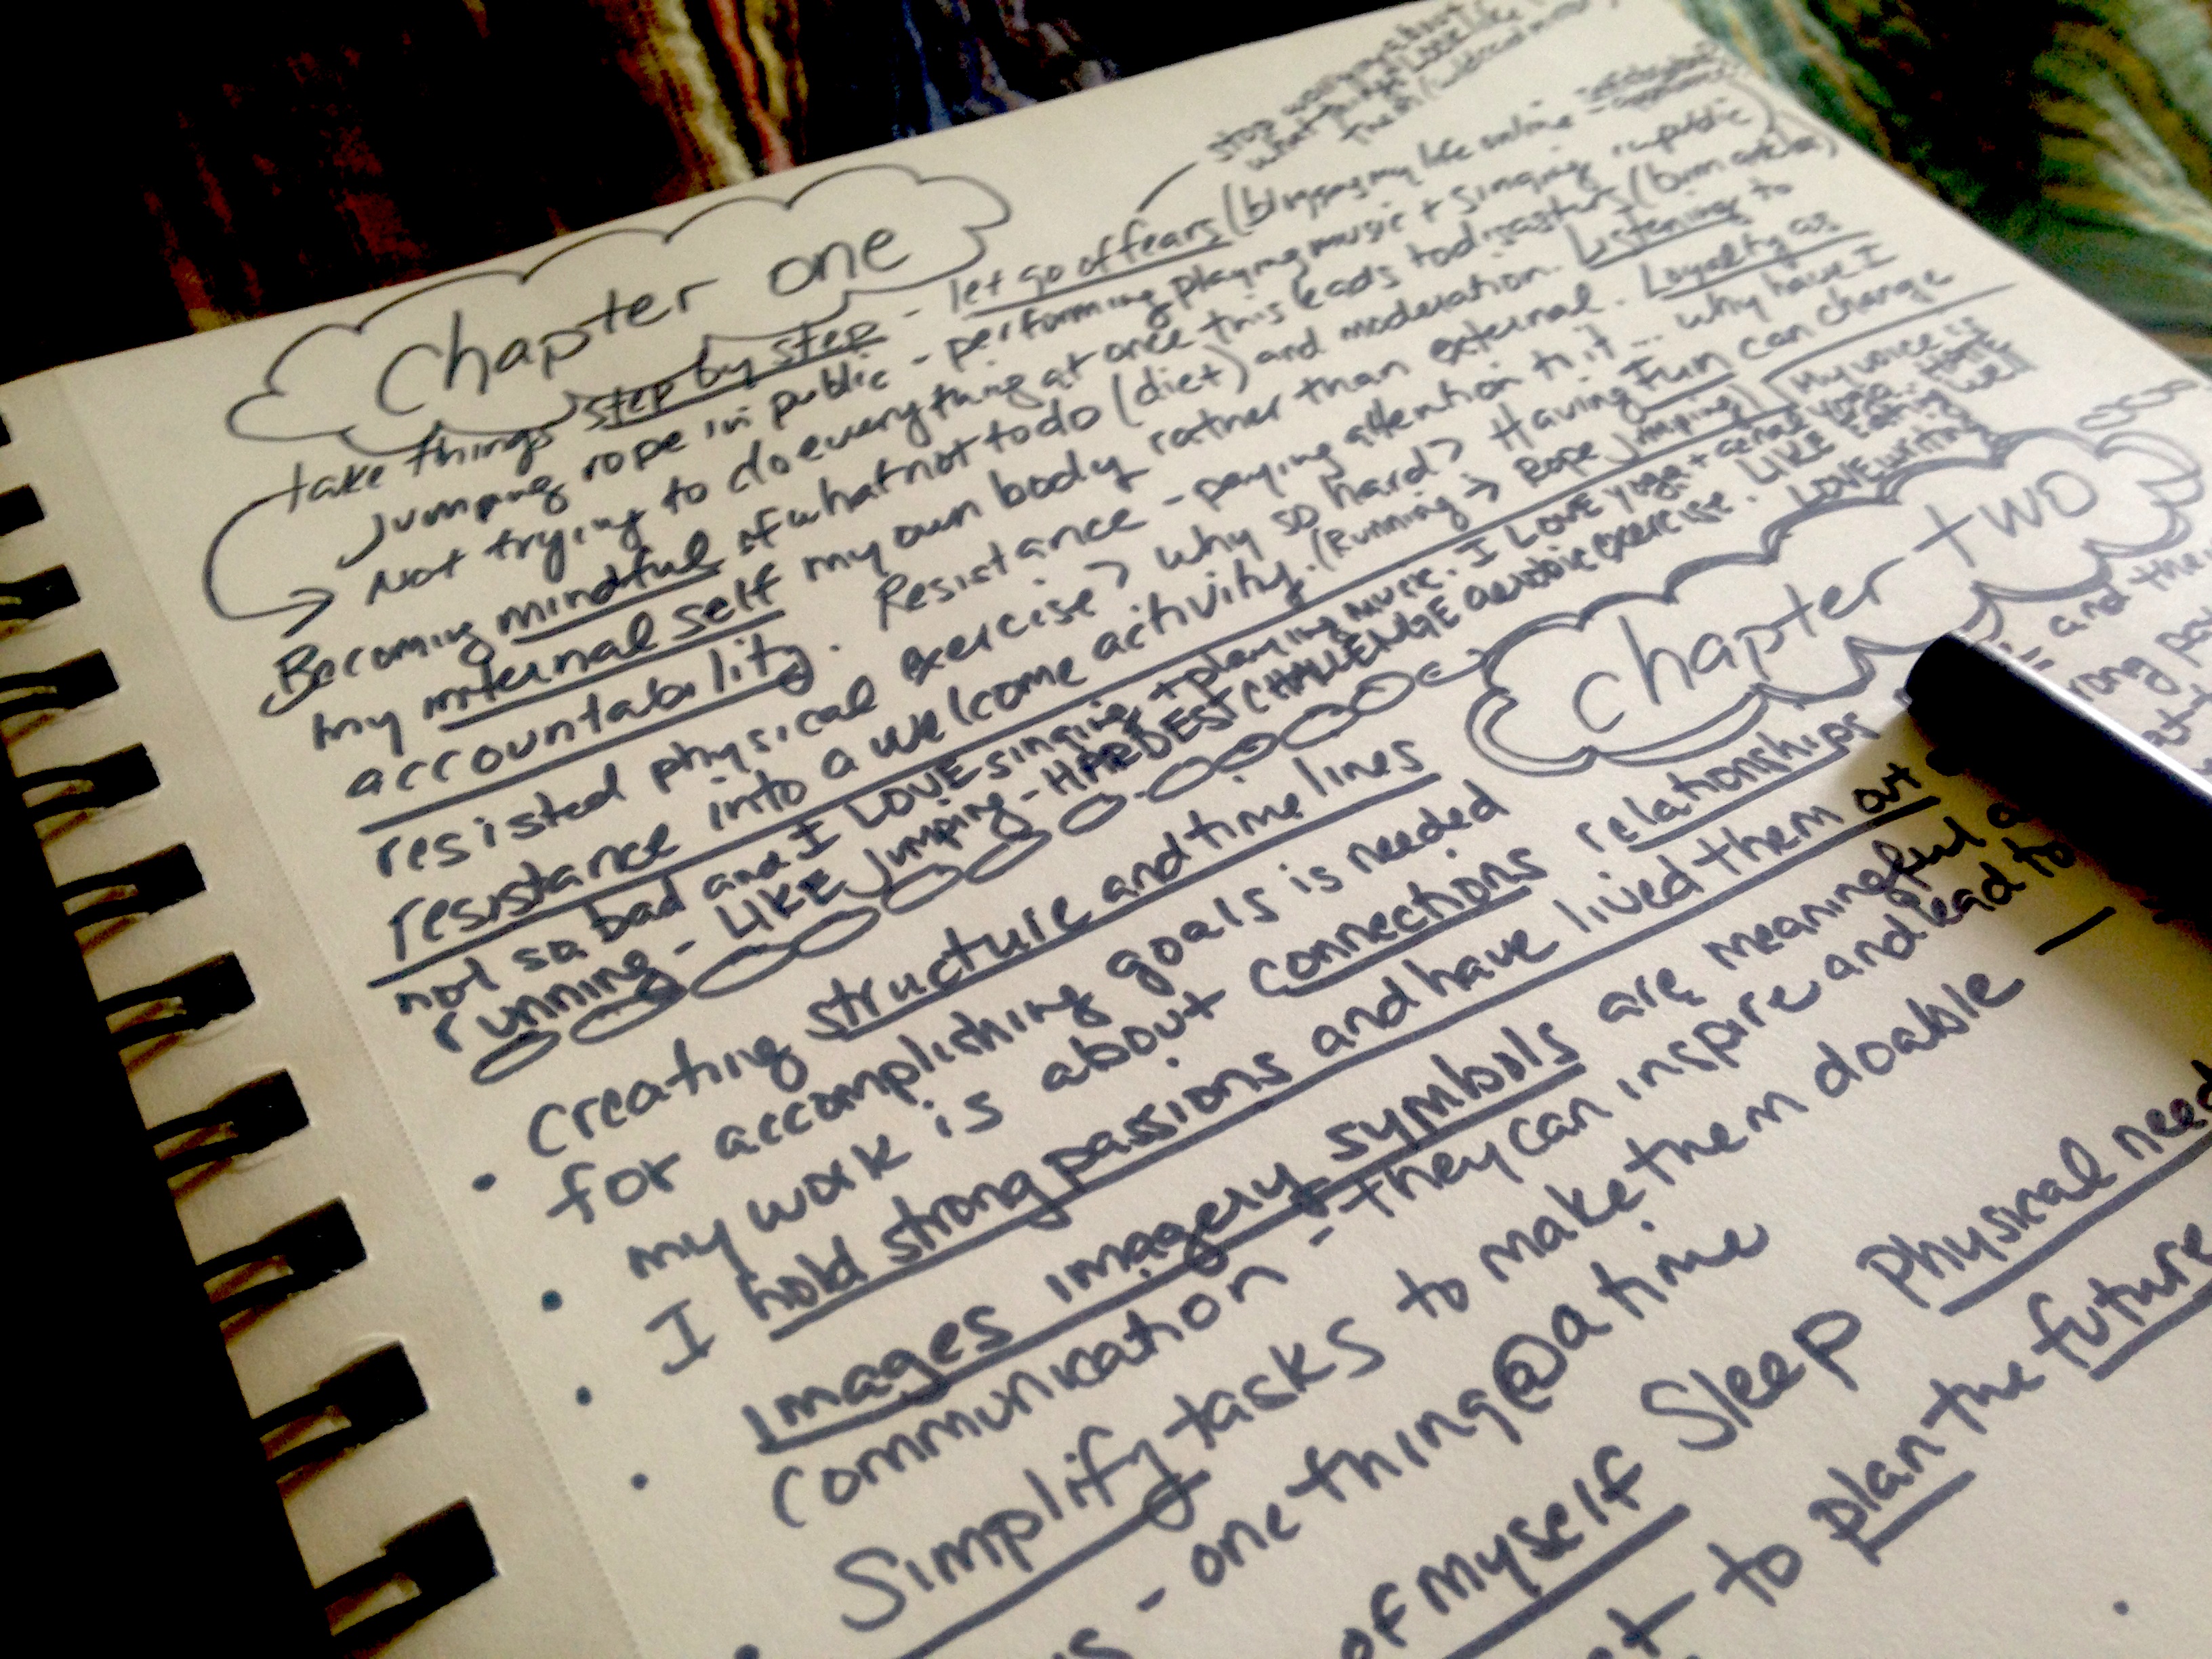 stop worrying about
what things look like
Chapter one
take things step by step - let go of fears (blogging my life online -
Jumping rope in public - performing playing music + singing in public)
Not trying to do everything at once this leads to disasters (burn out)
Becoming mindful of what not to do (diet) and moderation. Listening to
my internal self my own body rather than external. Loyalty as
accountability. Resistance - paying attention to it... why have I
resisted physical exercise? why so hard? Having Fun can change
resistance into a welcome activity. (Running -> Rope Jumping) My voice is
not so bad and I LOVE singing + playing music. I LOVE yoga + aerial yoga.
running - LIKE Jumping - HARDEST CHALLENGE aerobic exercise. LIKE Eating well
LOVE writing
Chapter two
• Creating structure and time lines
for accomplishing goals is needed
• my work is about connections relationships
• I hold strong passions and have lived them out
• Images imagery symbols are meaningful
communication - they can inspire and lead to
• Simplify tasks to make them doable
- one thing @ a time
of myself Sleep Physical need
to plan the future
and the